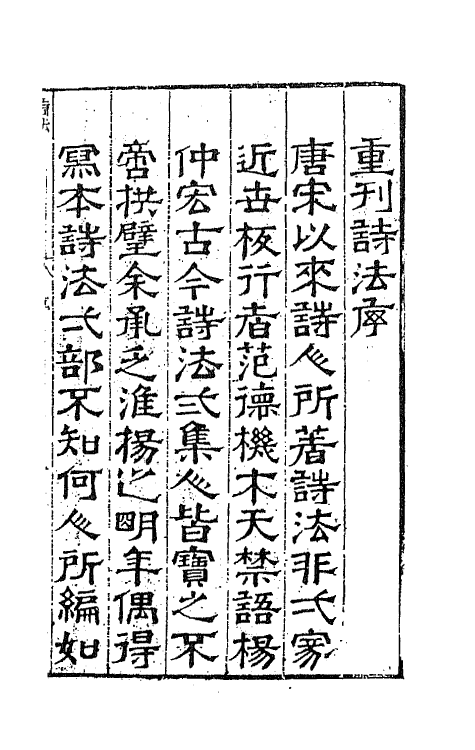 重刊詩法序
唐宋以來詩人所著詩法非弌家
近世板行者范德機木天禁語楊
仲宏古今詩法弍集人皆寶之不
啻拱璧余承乏淮楊之明年偶得
寫本詩法弌部不知何人所編如